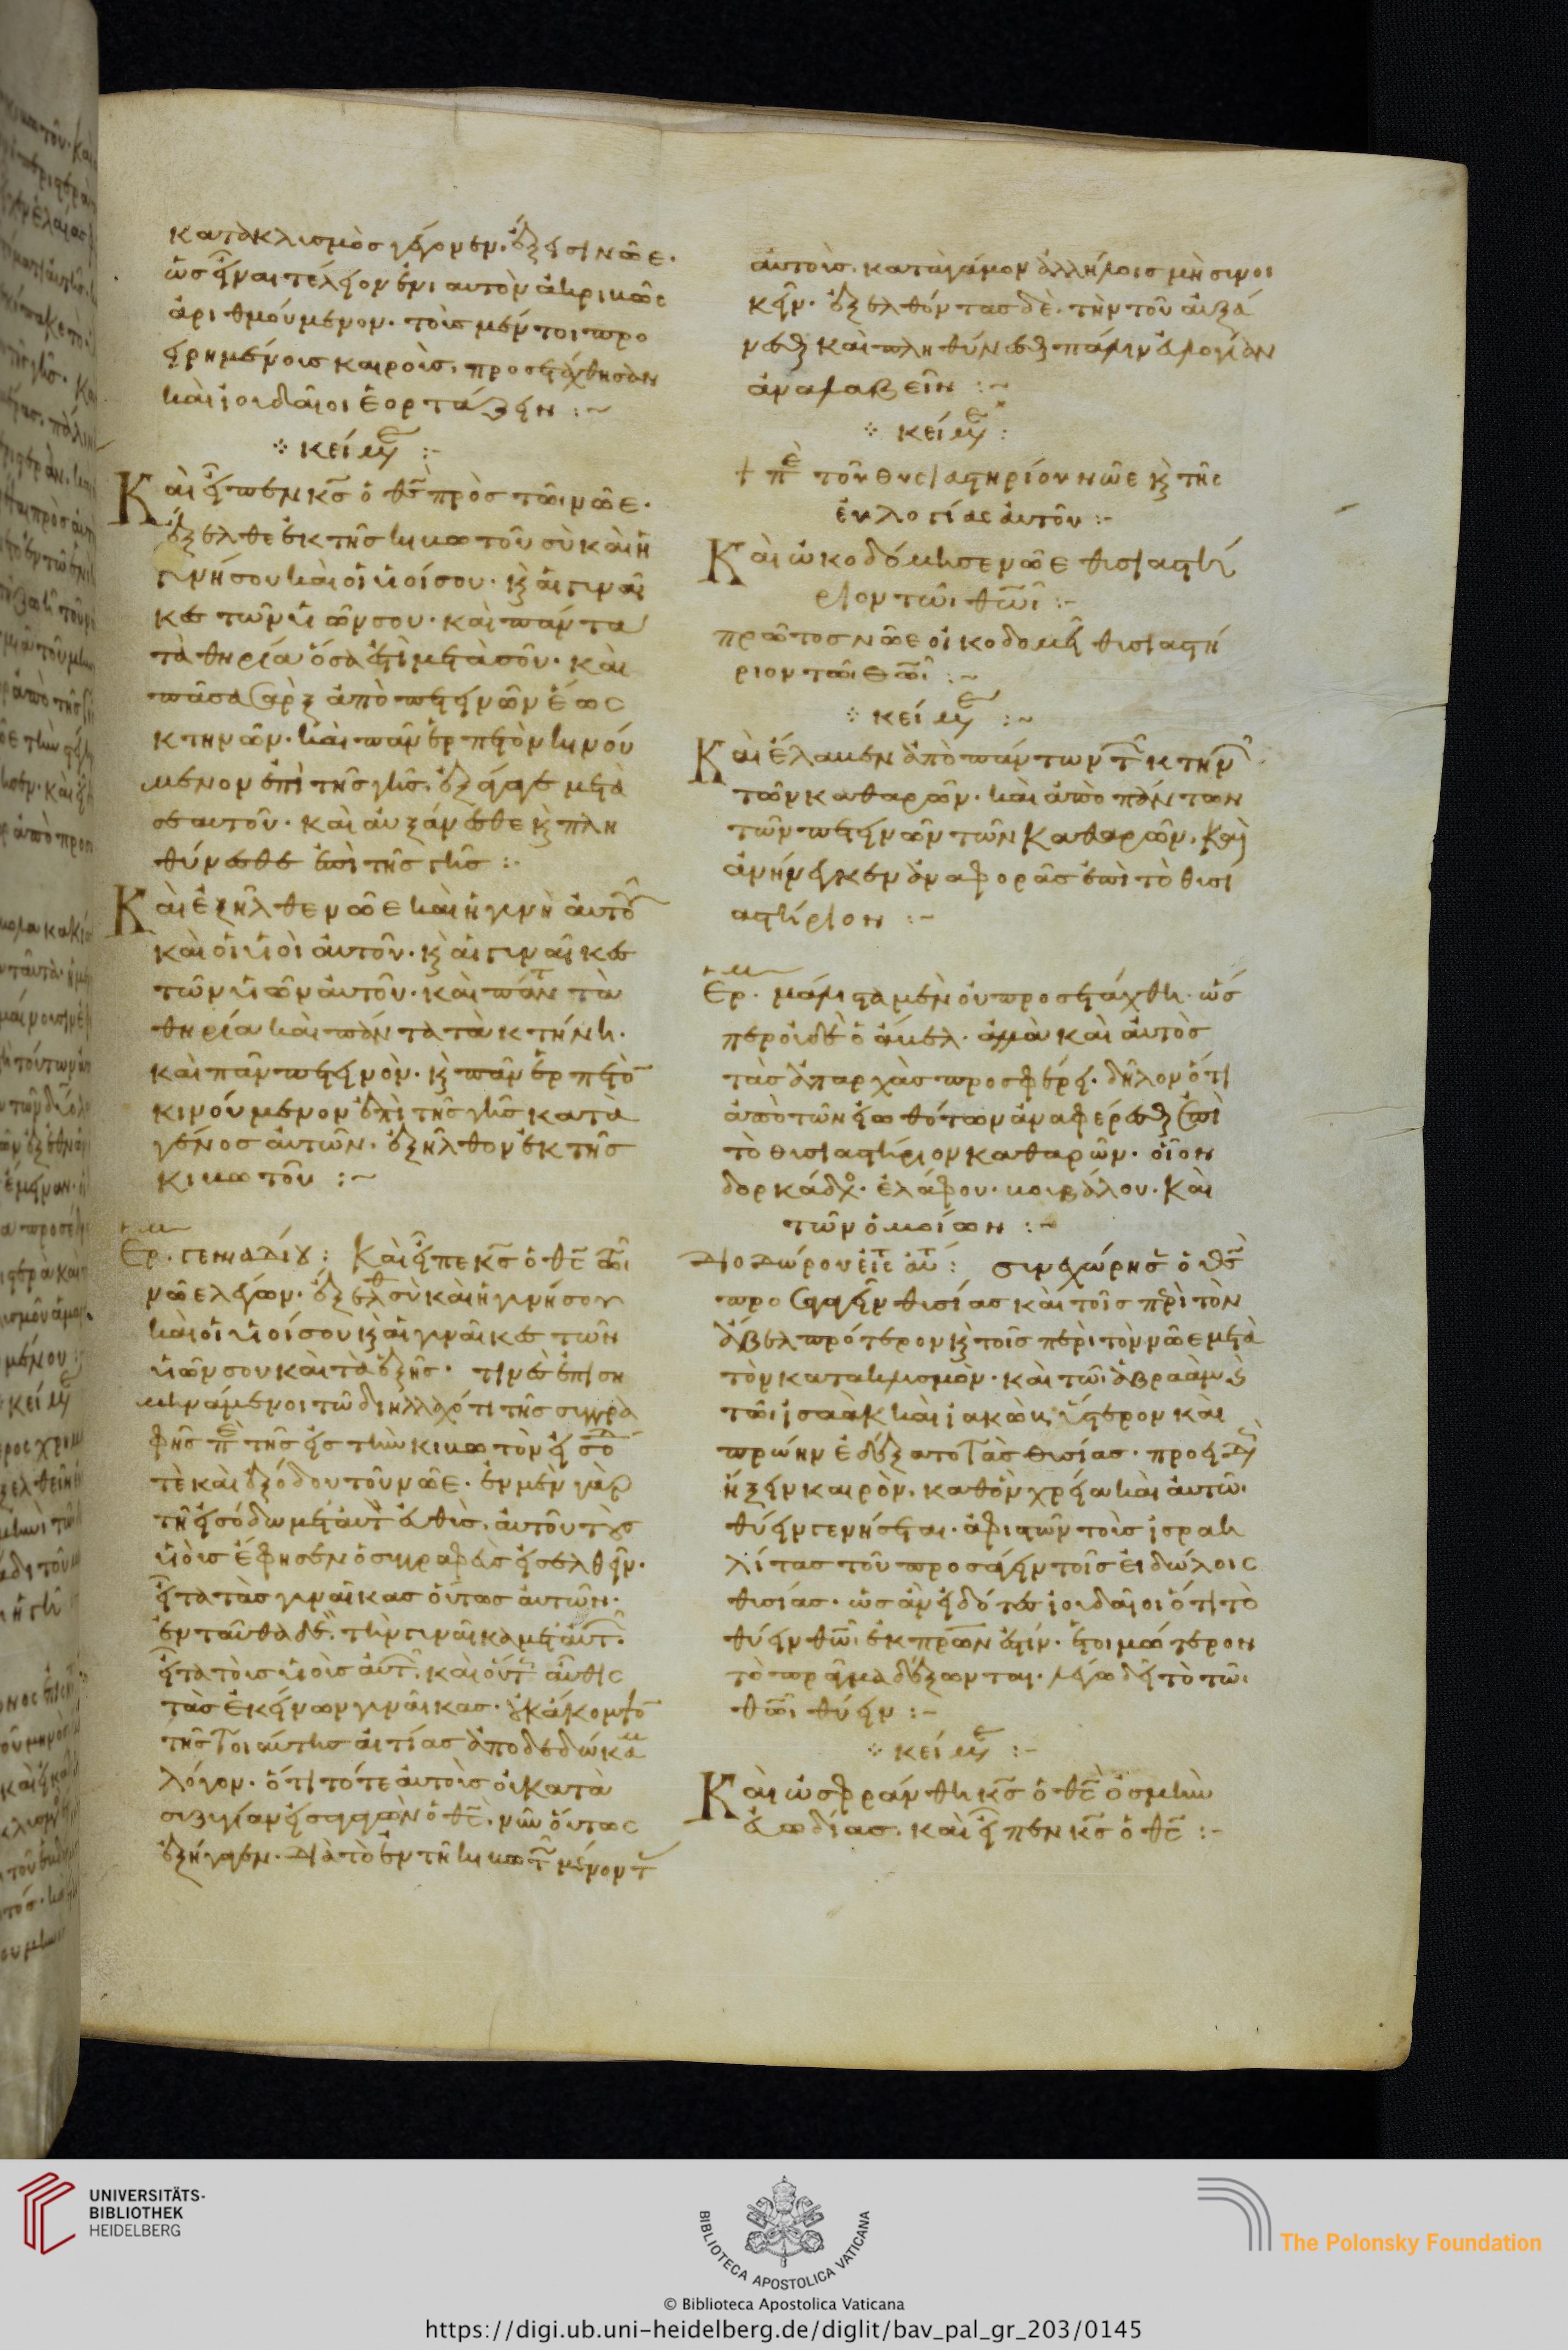 κατακλισμὸσ γέγονεν. ἐξέστι νῶε.
ὡσ εἶναι τέλειον ἐνι αυτὸν ἀκριβῶς
ἀριθμούμενον. τοῖσ μέντοι προ
ειρημένοισ καιροῖσ, προσετάχθησαν
καὶ ἰουδαῖοι ἑορτάζειν :~
κείμε :-
Καὶ εἶπεν κσ ὁ θσ πρὸσ τῶι νῶε.
ἔξελθε ἐκ τῆσ κιβωτοῦ σὺ καὶ ἡ
γυνήσου καὶ οἱ ὑιοίσου. κ αἱ γυναῖ
κεσ τῶν ὑιῶν σου. καὶ πάντα
τὰ θηρία ὅσα ἐστὶ μετὰ σοῦ. καὶ
πᾶσα σὰρξ ἀπὸ πετεινῶν ἕως
κτηνῶν. καὶ πᾶν ἑρπετὸν κινού
μενον ἐπὶ τῆσ γῆσ. ἐξάγαγε μετὰ
σεαυτοῦ. καὶ αυξάνεσθε κ πλη
θύνεσθε ἐπὶ τῆσ γῆσ :-
Καὶ ἐξῆλθε νῶε καὶ ἡ γυνὴ ἀυτοῦ
καὶ οἱ ὑιοὶ ἀυτοῦ. κ αἱ γυναῖκεσ
τῶν ὑιῶν ἀυτοῦ. καὶ πάντ τὰ
θηρία καὶ πάντα τὰ κτήνη.
καὶ πᾶν πετεινὸν. κ πᾶν ἑρπετὸ
κινούμενον ἐπὶ τῆσ γῆσ κατὰ
γένοσ ἀυτῶν. ἐξῆλθον ἐκ τῆσ
κιβωτοῦ :~
Ερμ. γενναδίου : Καὶ εἶπε κσ ὁ θς τῶι
νῶε λέγων. ἔξελθ σὺ καὶ ἡ γυνήσου
καὶ οἱ ὑιοίσου κ αἱ γυναῖκεσ τῶν
ὑιῶν σου καὶ τὰ ἑξῆσ. τινὲσ ἐπιση
μηνάμενοι τῶ διηλλαχότι τῆσ συγγρα
φῆσ πε τῆσ εἰσ τὴν κιβωτὸν εἰσόδ
τὲ καὶ ἐξόδου τοῦ νῶε. ἐν μὲν γὰρ
τῆ εἰσόδω μετ ἀυτ ἐυθὺσ, ἀυτοῦ τοὺσ
ὑιοὺσ ἔφησεν ὁ συγγραφεὺσ εἰσελθεῖν.
εἶτα τὰσ γυναῖκασ ὄυτωσ ἀυτῶν.
ἐνταῦθα δὲ. τὴν γυναῖκα μετ ἀυτ.
εἶτα τοὺσ ὑιοὺσ ἀυτ. καὶ ὄυτ αὖθις
τὰσ ἐκείνων γυναῖκασ. οὐκ ἄκομψο
τῆσ τοιαύτησ αἰτίασ ἀποδεδώκαμ
λόγον. ὅτι τότε ἀυτοὺσ ὁι κατὰ
συζυγίαν εἰσαγαγὼν ὁ θς, νῦν ὄυτως
ἐξήγαγεν. διὰ τὸ ἐν τῆ κιβωτ μένοντ
ἀυτοὺσ, κατὰ γάμον ἀλλήλοισ μὴ συνοι
κεῖν. ἐξελθόντασ δὲ. τὴν τοῦ ἀυξά
νεσθ καὶ πληθύνεσθ πάλιν ἐυλογίαν
ἀναλαβεῖν :~
κείμε :
+ πε τοῦ θυσιαστηρίου νῶε κ τῆς
ἐυλογίας ἀυτοῦ :-
Καὶ ὠκοδόμησε νῶε θυσιαστή
ριον τῶι θῶι :-
πρῶτοσ νῶε οἰκοδομεῖ θυσιαστή
ριον τῶι θῶι :~
κείμε :~
Καὶ ἔλαβεν ἀπὸ πάντων τ κτην
τῶν καθαρῶν. καὶ ἀπὸ πάντων
τῶν πετεινῶν τῶν καθαρῶν. καὶ
ἀνήνεγκεν ἀναφορᾶσ ἐπὶ τὸ θυσι
αστήριον :-
Ερμ. μάλιστα μὲν ὀυ προσετάχθη. ὥσ
περ ὀυδὲ ὁ ἄβελ. ἀλλὰ καὶ ἀυτὸσ
τὰσ ἀπαρχὰσ προσφέρει. δῆλον ὅτι
ἀπὸ τῶν εἰωθότων ἀναφέρεσθ ἐπὶ
τὸ θυσιαστήριον καθαρῶν. οἷον
δορκάδο. ἐλάφου. βουβάλου. καὶ
τῶν ὁμοίων :~
Διοδώρου εἰς τ αυτ : συνεχώρησ ὁ θσ
προσάγειν θυσίασ καὶ τοῖσ περὶ τὸν
ἄβελ πρότερον κ τοῖσ περὶ τὸν νῶε μετὰ
τὸν κατακλυσμὸν. καὶ τῶι ἀβραὰμ κ
τῶι ἰσαὰκ καὶ ἰακὼβ, ὕστερον καὶ
πρώην ἐδέξατο τὰσ θυσίασ. προειδὼσ
ἥξειν καιρὸν, καθ ὃν χρεία καὶ ἀυτῶ.
θύειν γενήσεται. ἀφιστῶν τοὺσ ἰσραη
λίτασ τοῦ προσάγειν τοῖσ ἐιδώλοις
θυσίασ. ὡσ ἀν ἐιδότεσ ἰουδαῖοι ὅτι τὸ
θύειν θῶ ἐκ πρώτων ἐστίν. ἑτοιμότερον
τὸ πρᾶγμα δέξωνται. λέγω δὴ τὸ τῶι
θῶι θύειν :-
κείμε :-
Καὶ ὠσφράνθη κσ ὁ θς ὀσμὴν
ἐυωδίασ. καὶ εἶπεν κσ ὁ θς :-
UNIVERSITÄTS-
BIBLIOTHEK
HEIDELBERG
BIBLIOTECA APOSTOLICA VATICANA
The Polonsky Foundation
© Biblioteca Apostolica Vaticana
https://digi.ub.uni-heidelberg.de/diglit/bav_pal_gr_203/0145